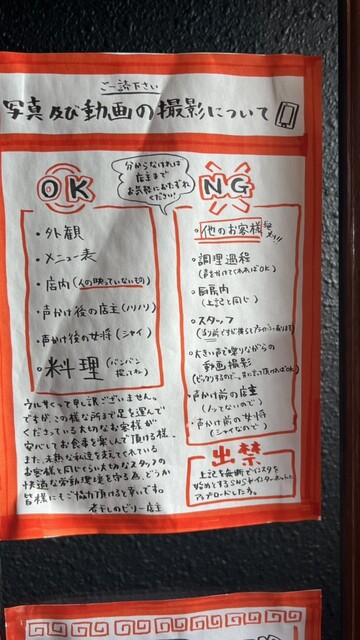 ご一読下さい
写真及び動画の撮影について
OK
分からなければ
店主まで
お気軽におたずね
ください!
NG
・外観
・メニュー表
・店内(人の映っていないもの)
・声かけ後の店主(ノリノリ)
・声かけ後の女将(シャイ)
・料理(バンバン
撮ってね)
・他のお客様
・調理過程
(声をかけてくれればOK)
・厨房内
(上記と同じ)
・スタッフ
・大きい声で喋りながらの
動画撮影
・声かけ前の店主
(ノッてないので)
・声かけ前の女将
(シャイなので)
ウルサくって申し訳ございません。
ですが、この様な所まで足を運んで
くださっている大切なお客様が
安心してお食事を楽しんで頂ける様、
また、未熟な私達を支えてくれている
お客様と同じくらい大切なスタッフの
快適な労働環境を守る為、どうか
皆様にもご協力頂けると幸いです。
煮干しのビリー店主
出禁
上記を無断でインスタを
始めとするSNSやインターネットに
アップロードした方。